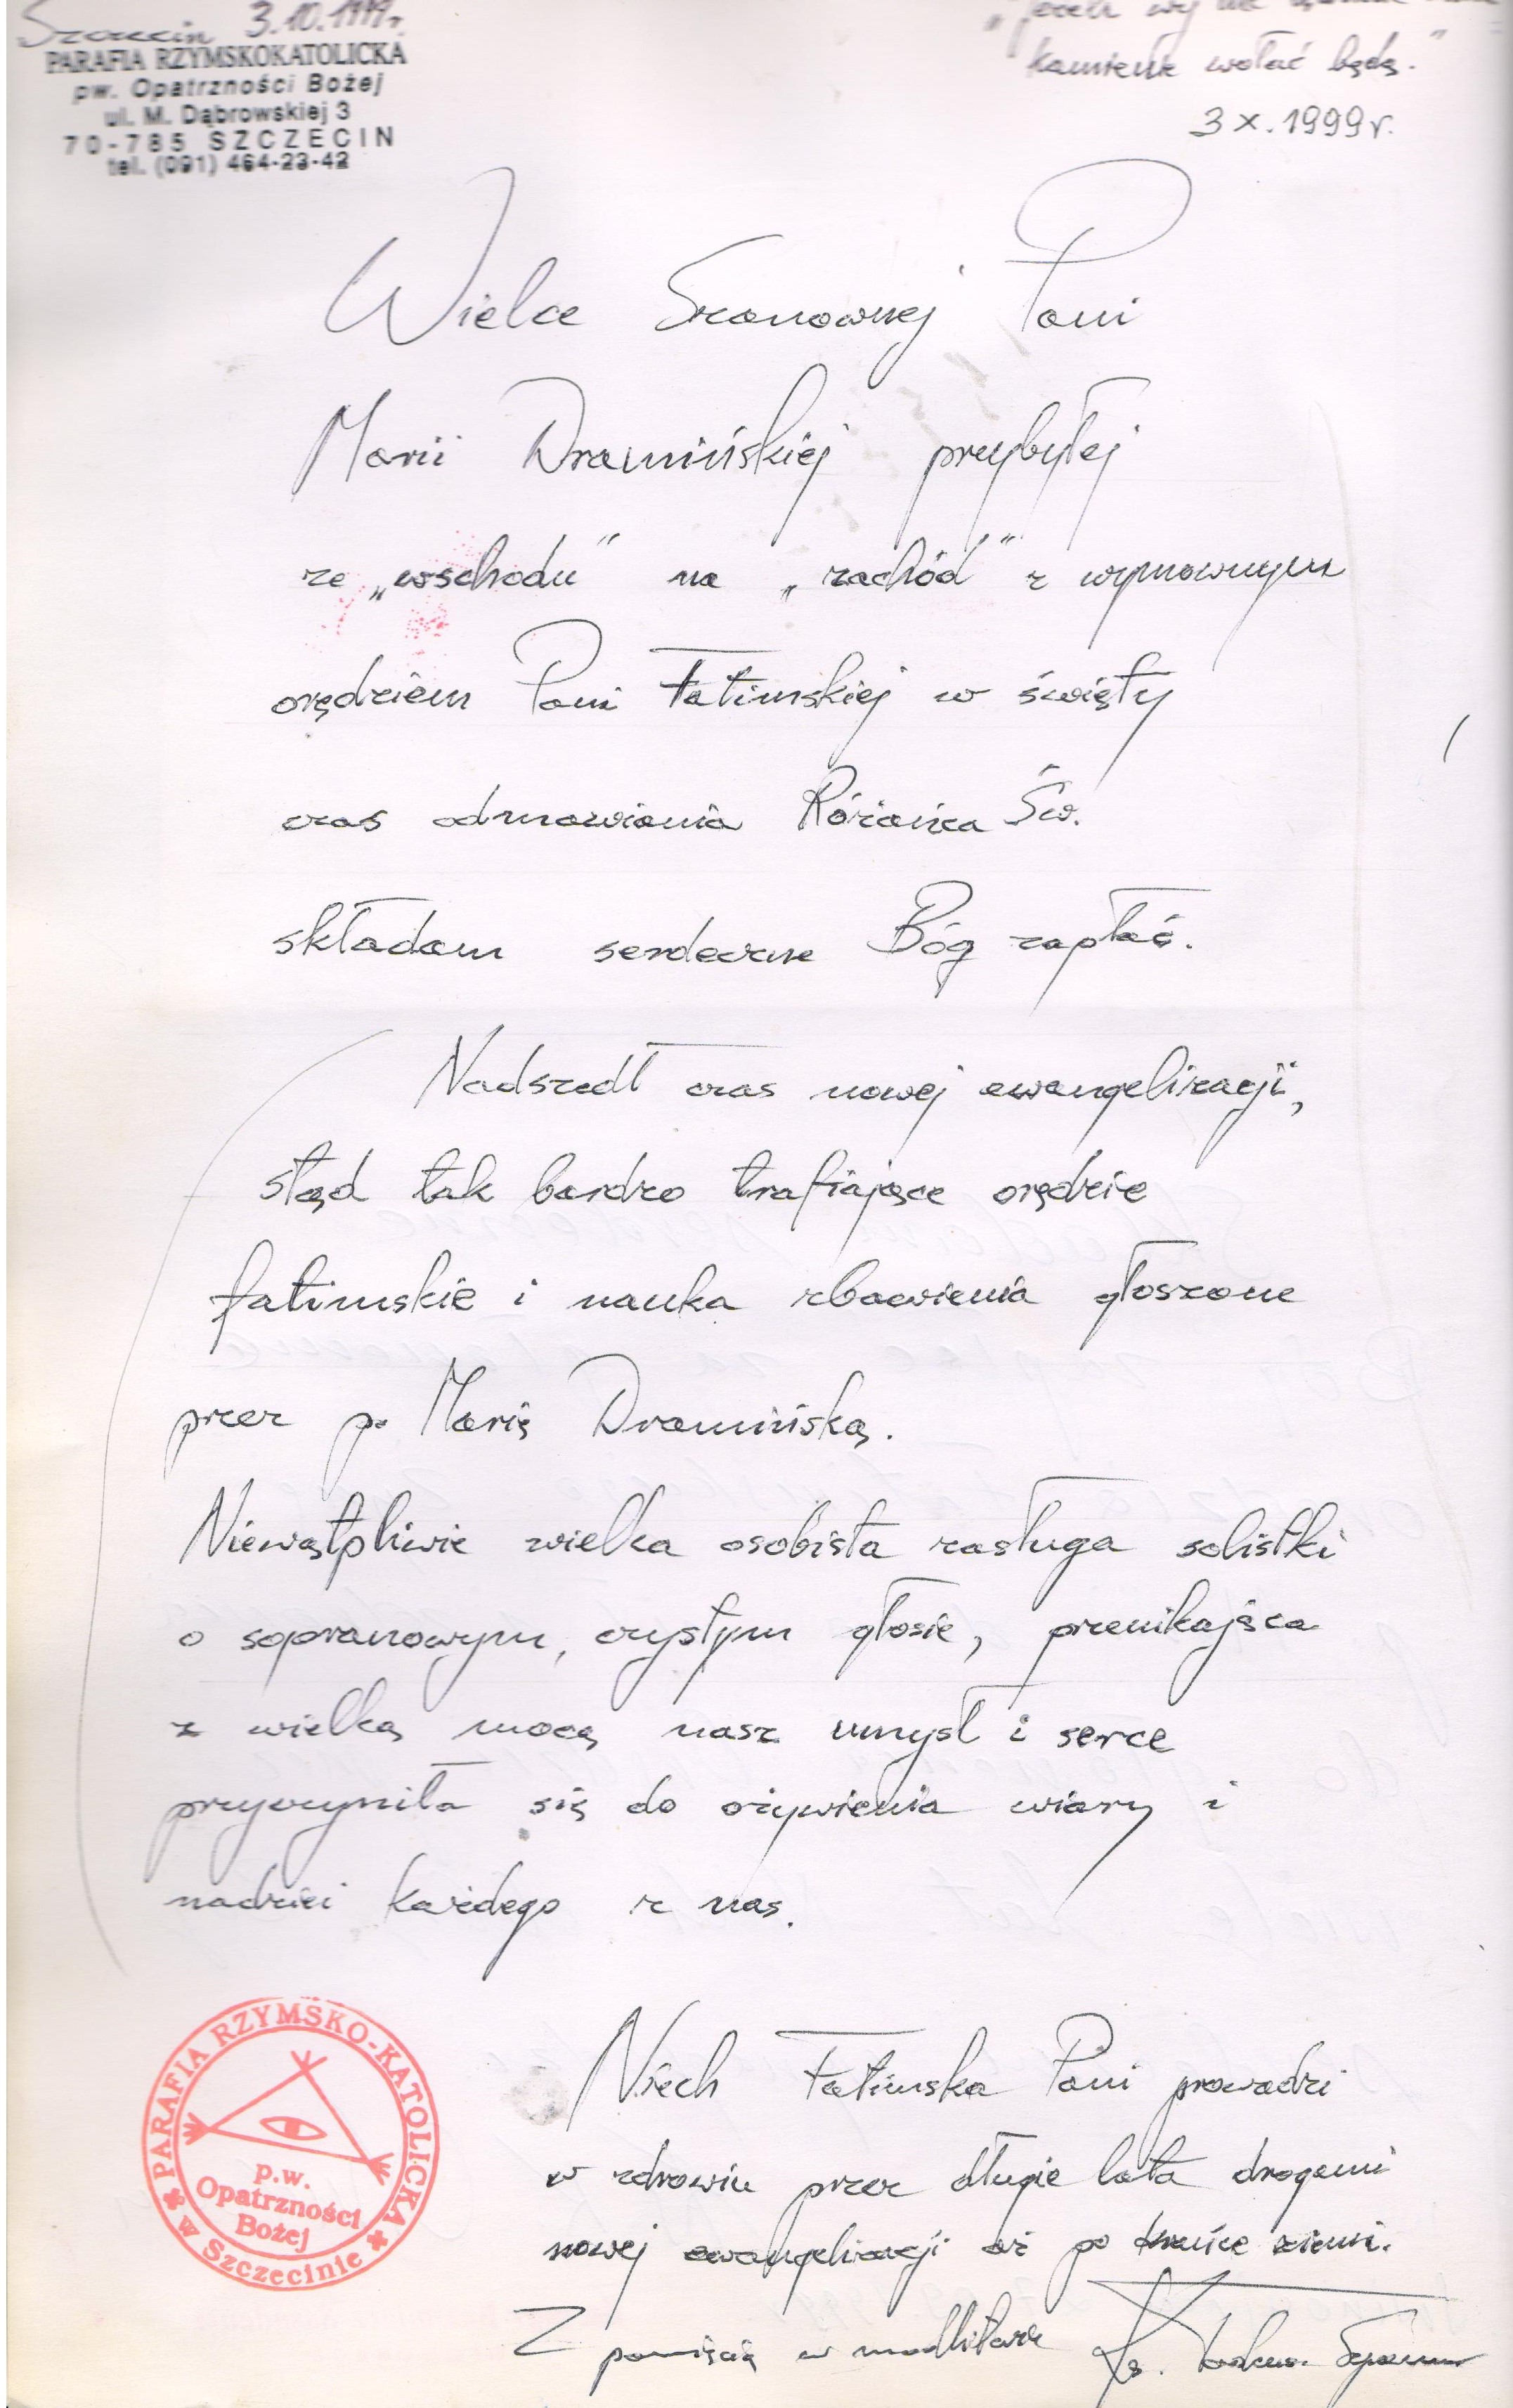 Szczecin 3.10.1999r.
PARAFIA RZYMSKOKATOLICKA
pw. Opatrzności Bożej
ul. M. Dąbrowskiej 3
70-785 SZCZECIN
tel. (091) 464-23-42
kamienie wołać będą."
3 X. 1999 r.
Wielce Szanownej Pani
Marii Dramińskiej przybyłej
ze „wschodu" na „zachód" z wymownym
orędziem Pani Fatimskiej w święty
czas odmawiania Różańca Św.
składam serdeczne Bóg zapłać.
Nadszedł czas nowej ewangelizacji,
stąd tak bardzo trafiające orędzie
fatimskie i nauka zbawienia głoszone
przez p. Marię Dramińską.
Niewątpliwie wielka osobista zasługa solistki
o sopranowym, czystym głosie, przenikająca
z wielką mocą nasz umysł i serce
przyczyniła się do ożywienia wiary i
nadziei każdego z nas.
Niech Fatimska Pani prowadzi
w zdrowiu przez długie lata drogami
nowej ewangelizacji aż po krańce ziemi.
Z pamięcią w modlitwie Ks.
PARAFIA RZYMSKO-KATOLICKA
p.w.
Opatrzności
Bożej
w Szczecinie